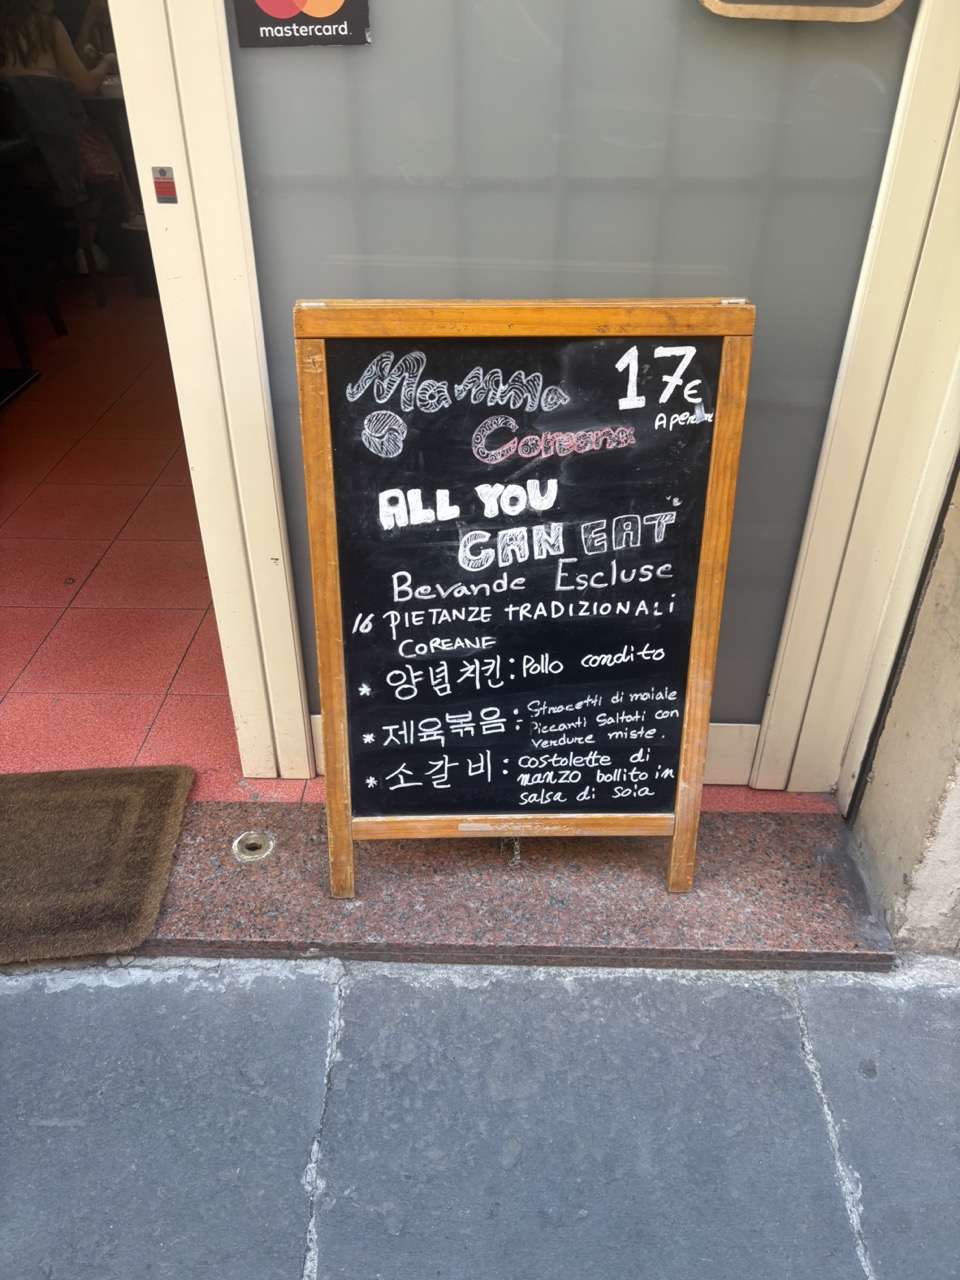 mastercard.
Mamma
17€
Coreana
ALL YOU
CAN EAT
Bevande Escluse
16 PIETANZE TRADIZIONALI
COREANE
* 양념치킨: Pollo condito
* 제육볶음: Stracetti di maiale
Piccanti Saltati con
verdure miste.
* 소갈비: costolette di
manzo bollito in
salsa di soia